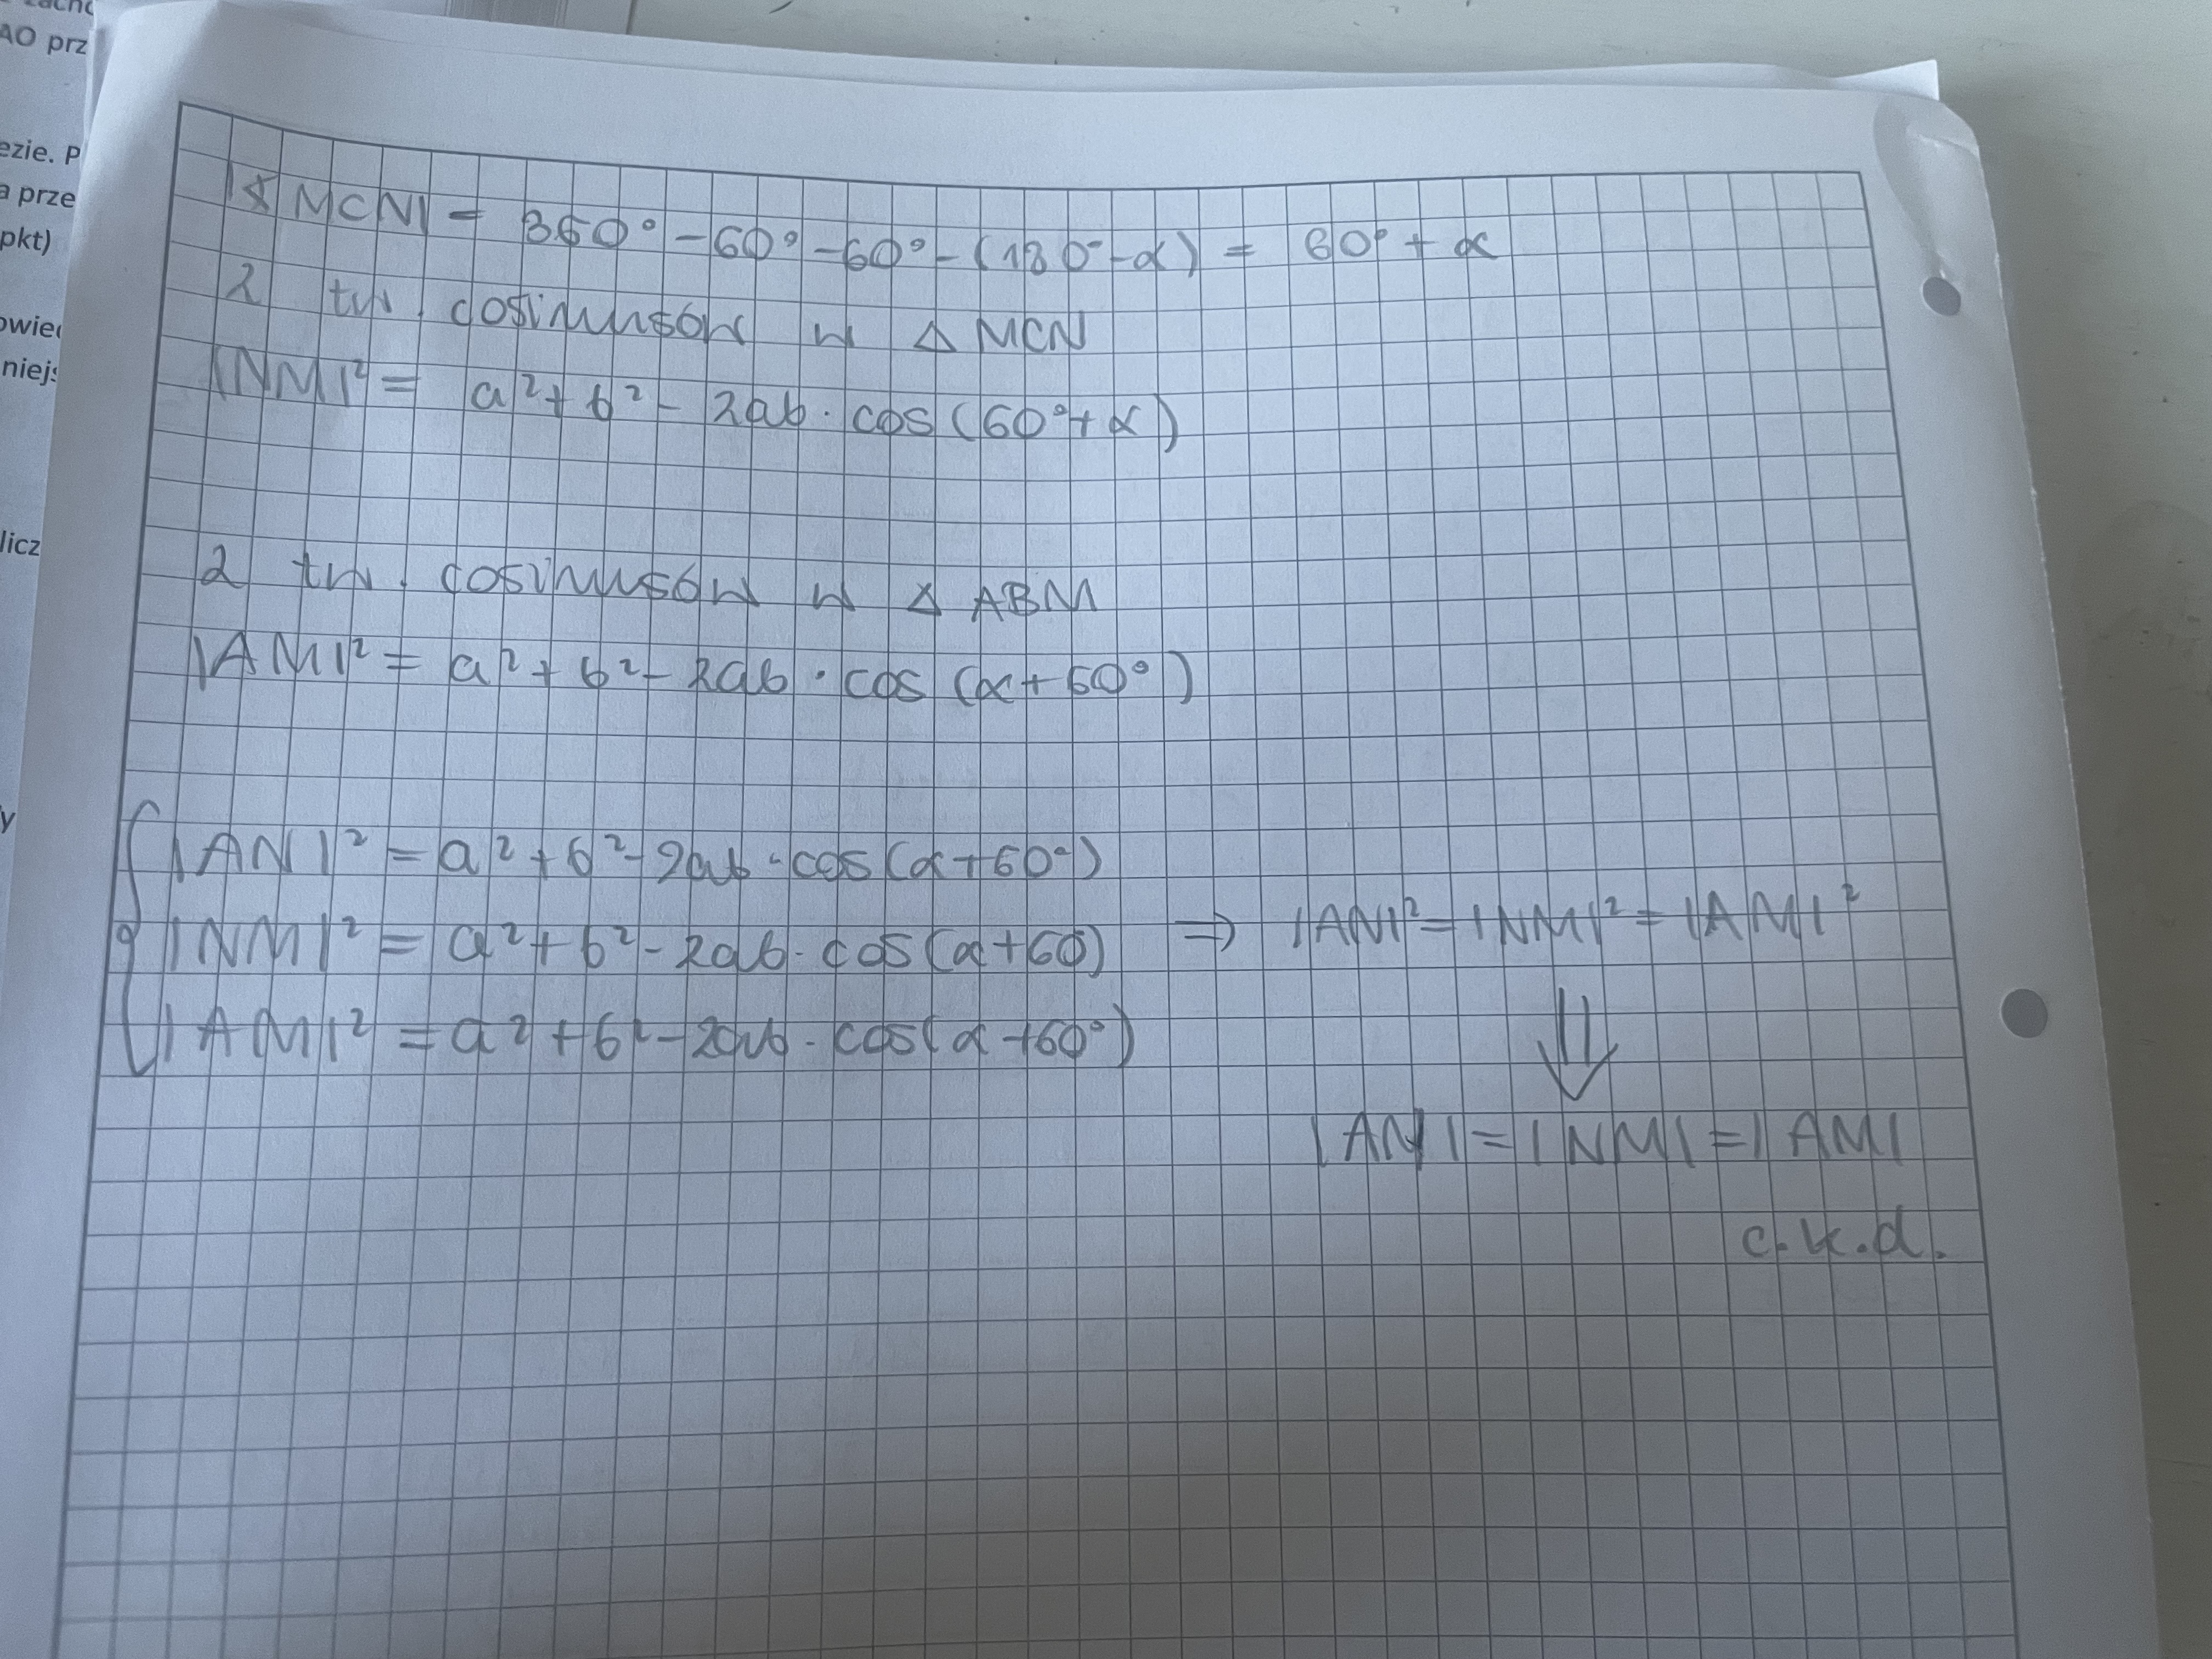 zacho
AO prz
ezie. P
a prze
pkt)
owied
niejs
licz
y
|∢MCN| = 360° - 60° - 60° - (180° - α) = 60° + α
Z tw. cosinusów w Δ MCN
|NM|² = a² + b² - 2ab · cos(60° + α)
Z tw. cosinusów w Δ ABM
|AM|² = a² + b² - 2ab · cos(α + 60°)
|AN|² = a² + b² - 2ab · cos(α + 60°)
|NM|² = a² + b² - 2ab · cos(α + 60) ⇒ |AN|² = |NM|² = |AM|²
|AM|² = a² + b² - 2ab · cos(α + 60°)
⇓
|AN| = |NM| = |AM|
c.k.d.